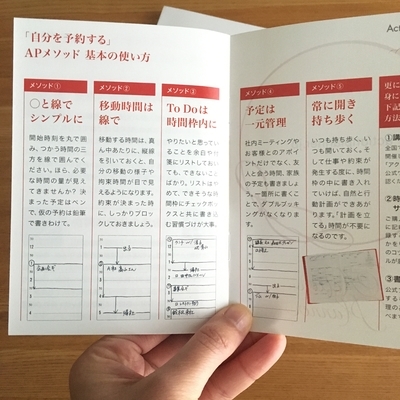 「自分を予約する」
APメソッド 基本の使い方
メソッド①
○と線で
シンプルに
開始時刻を丸で囲
み、つかう時間の三
方を線で囲んでく
ださい。ほら、必要
な時間の量が見え
てきませんか? 決
まった予定はペン
で、仮の予約は鉛筆
で書きわけて。
メソッド②
移動時間は
線で
移動する時間は、真
ん中あたりに、縦線
を引いておくと、自
分の移動の様子や
拘束時間が目で見
えるようになります。
約束が決まった時
に、しっかりブロッ
クしておきましょう。
メソッド③
To Doは
時間枠内に
やりたいと思ってい
ることを余白や付
箋にリストしておい
ても、できないこと
ばかり。リストはや
めて、できそうな時
間枠にチェックボッ
クスと共に書き込
む習慣づけが大事。
メソッド④
予定は
一元管理
社内ミーティングや
お客様とのアポイ
ントだけでなく、友
人と会う時間、家族
の予定も書きましょ
う。一箇所に書くこ
とで、ダブルブッキ
ングがなくなります。
メソッド⑤
常に開き
持ち歩く
いつも持ち歩く。い
つも開いておく。そ
して仕事や約束が
発生する度に、時間
枠の中に書き入れ
ていけば、自然と行
動計画ができあが
ります。「計画を立
てる」時間が不要に
なるのです。
Act
更に
身に
下記
方法
①講
全国
開催
②時
サ
③書
公式